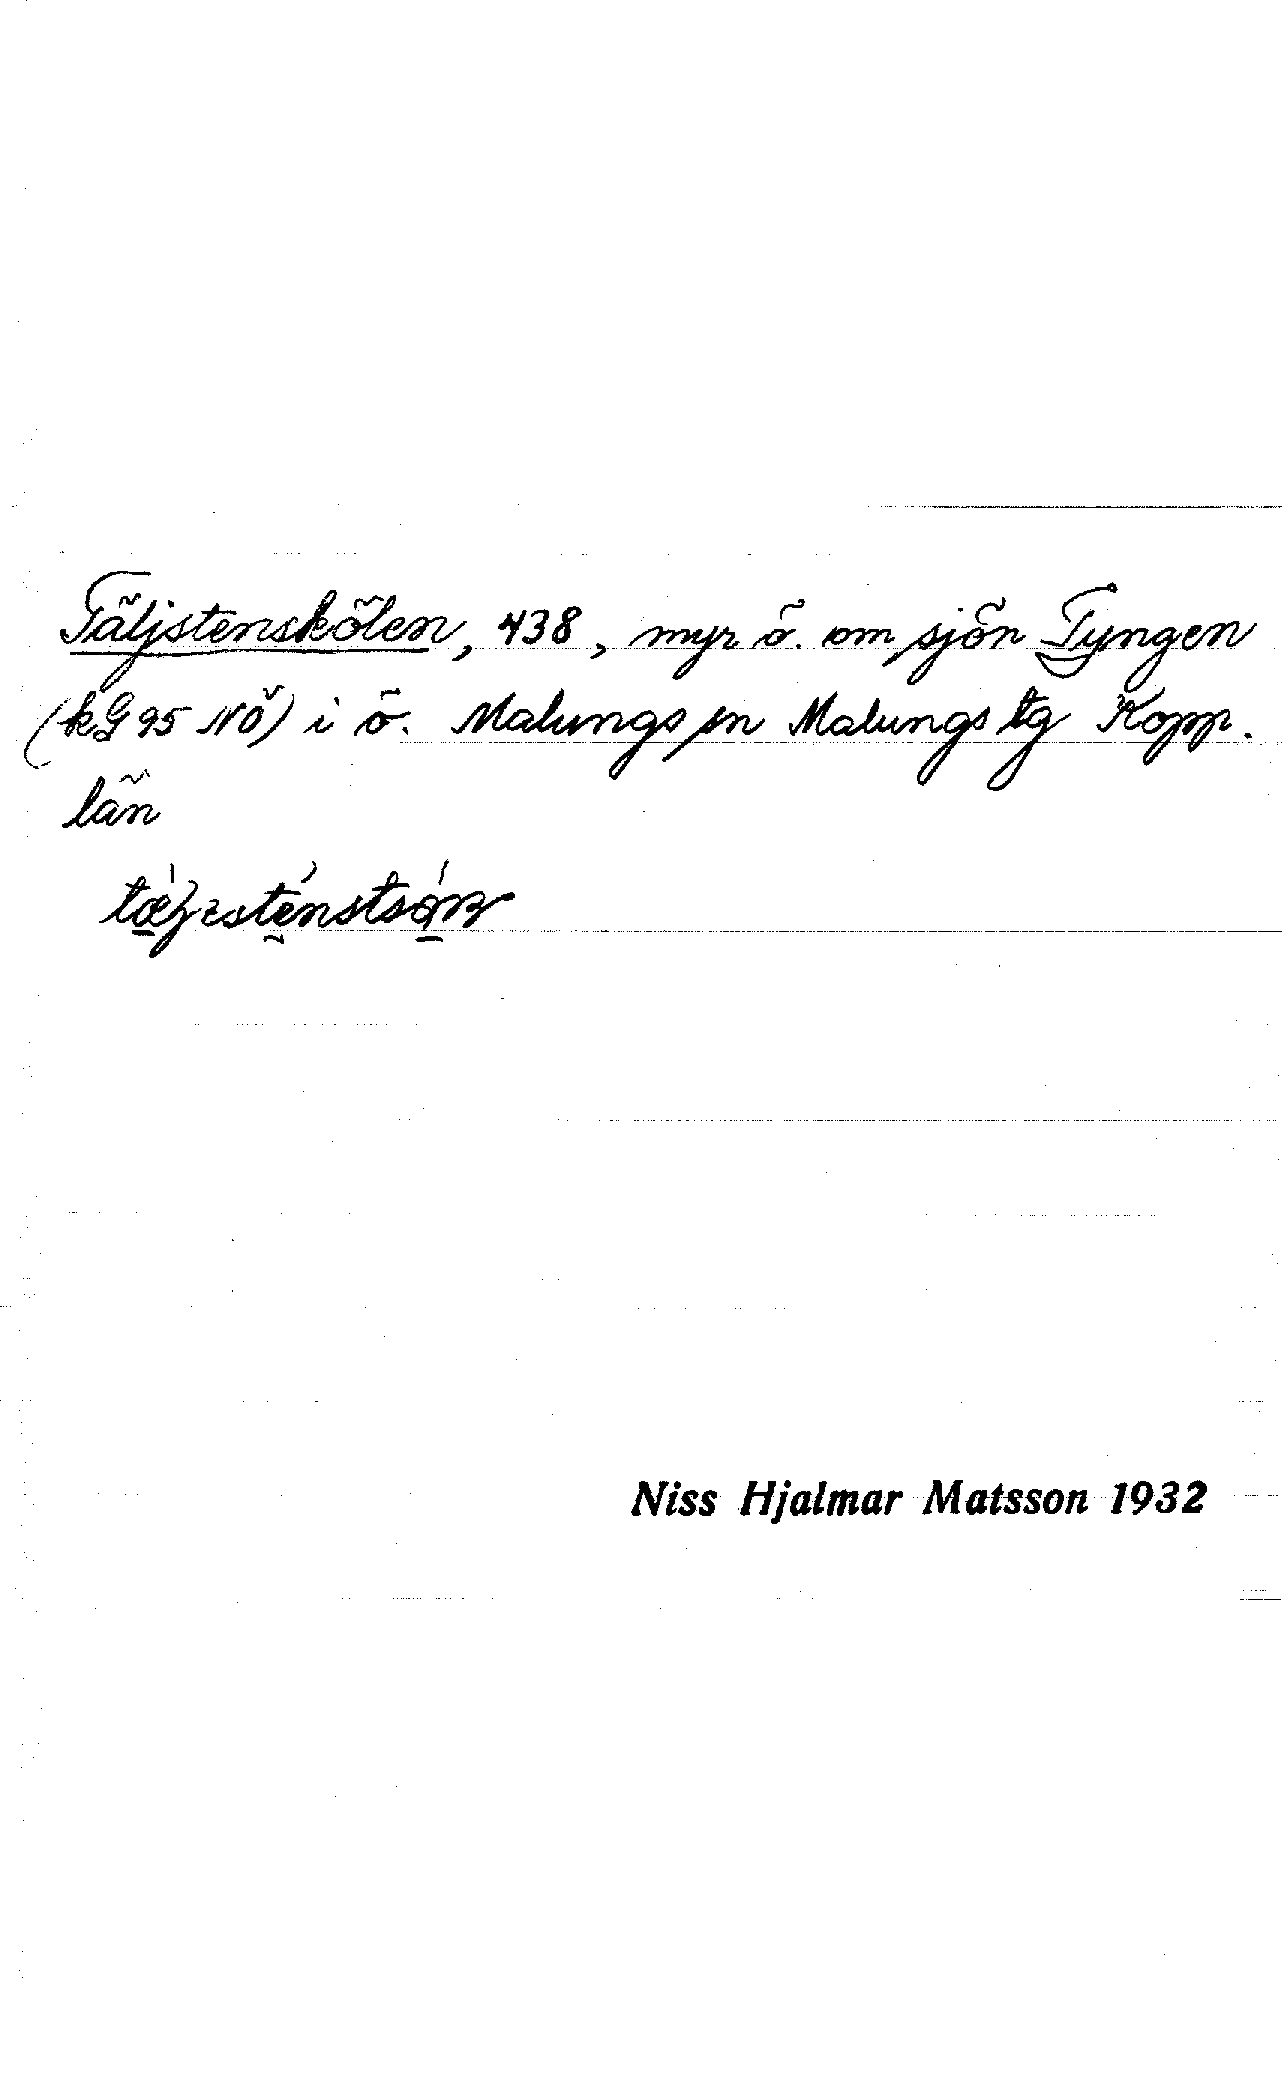 Täljstenskölen, 438, myr ö. om sjön Tyngen
(kG 95 NÖ) i ö. Malungs sn Malungs tg Kopp.
län
Niss Hjalmar Matsson 1932